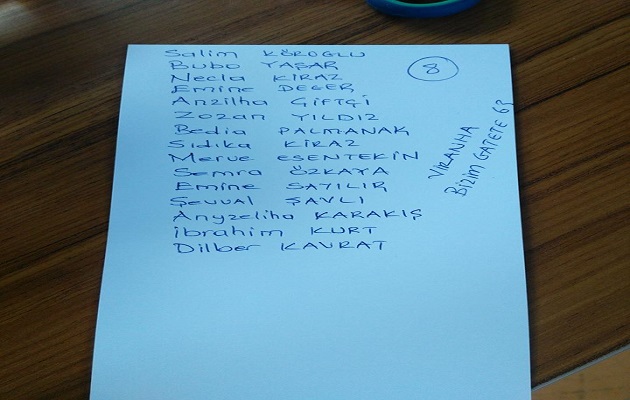 Salim KÖROGLU
Bubo YAŞAR
Necla KİRAZ
Emine DEGER
Anzilha ÇİFTÇİ
Zozan YILDIZ
Bedia PALMANAK
Sıdıka KİRAZ
Merve ESENTEKİN
Semra ÖZKAYA
Emine SATILIR
Şevval ŞAVLI
Anyzeliha KARAKIŞ
İbrahim KURT
Dilber KAVRAT
8
VİRANHA
BİZİM GATETE 63